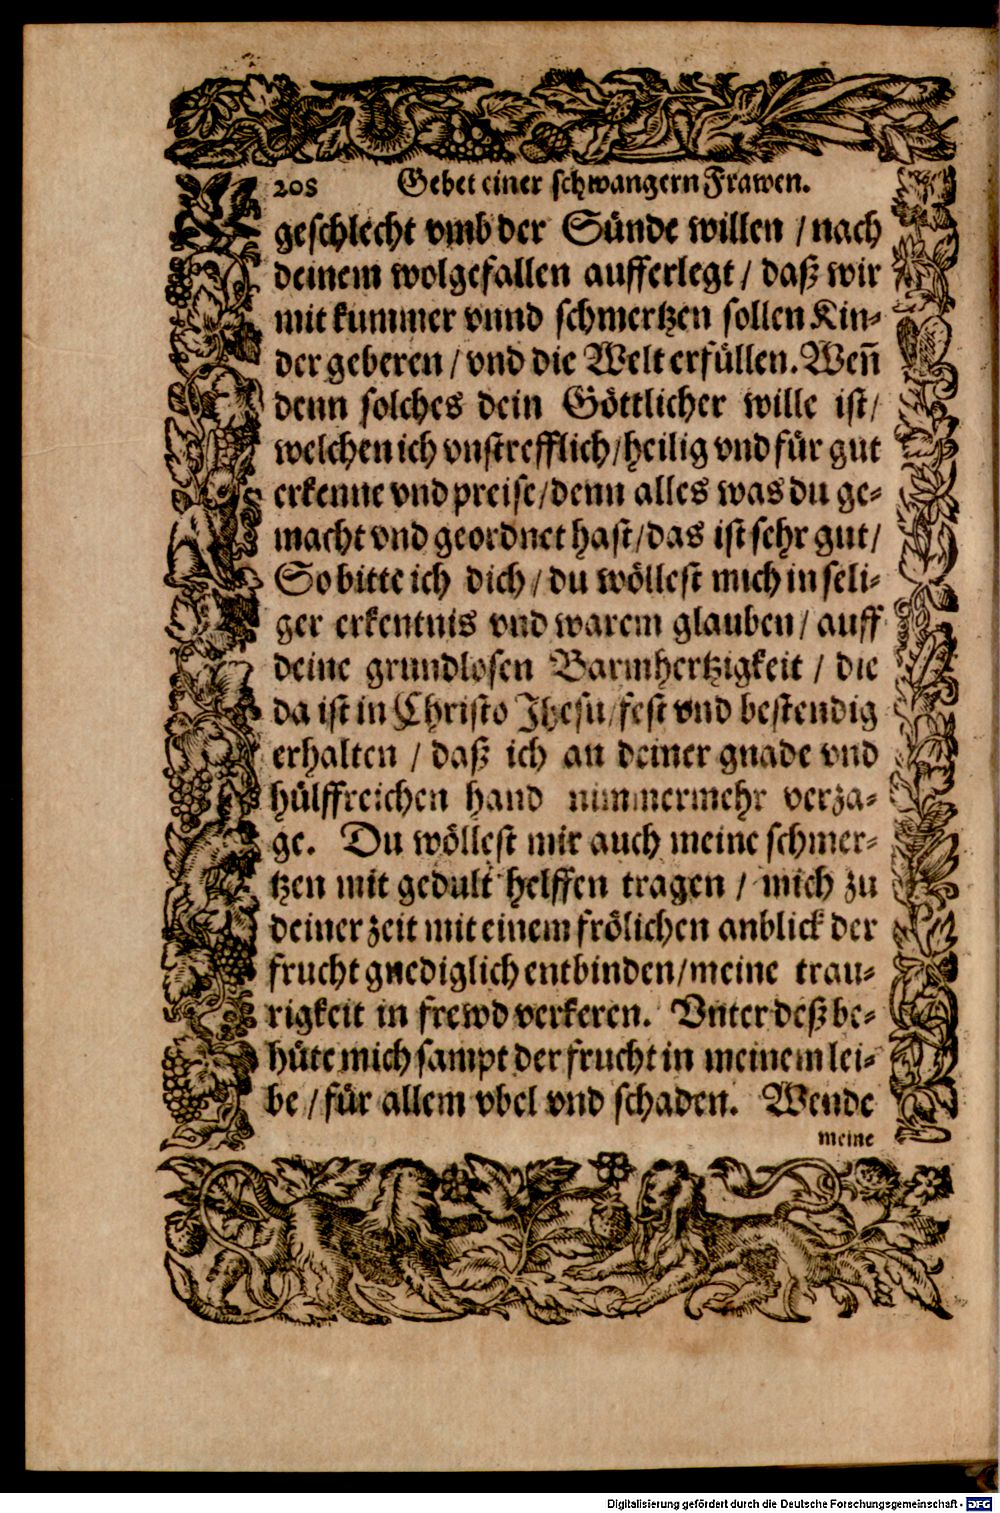 208 Gebet einer schwangern Frawen.
geschlecht vmb der Sünde willen / nach
deinem wolgefallen aufferlegt / daß wir
mit kummer vnnd schmertzen sollen Kin-
der geberen / vnd die Welt erfüllen. Weñ
denn solches dein Göttlicher wille ist /
welchen ich vnstrefflich / heilig vnd für gut
erkenne vnd preise / denn alles was du ge-
macht vnd geordnet hast / das ist sehr gut /
So bitte ich dich / du wöllest mich in seli-
ger erkentnis vnd warem glauben / auff
deine grundlosen Barmhertzigkeit / die
da ist in Christo Jhesu / fest vnd bestendig
erhalten / daß ich an deiner gnade vnd
hülffreichen hand nimmermehr verza-
ge. Du wöllest mir auch meine schmer-
tzen mit gedult helffen tragen / mich zu
deiner zeit mit einem frölichen anblick der
frucht gnediglich entbinden / meine trau-
rigkeit in frewd verkeren. Vnter deß be-
hüte mich sampt der frucht in meinem lei-
be / für allem vbel vnd schaden. Wende
meine
Digitalisierung gefördert durch die Deutsche Forschungsgemeinschaft - DFG